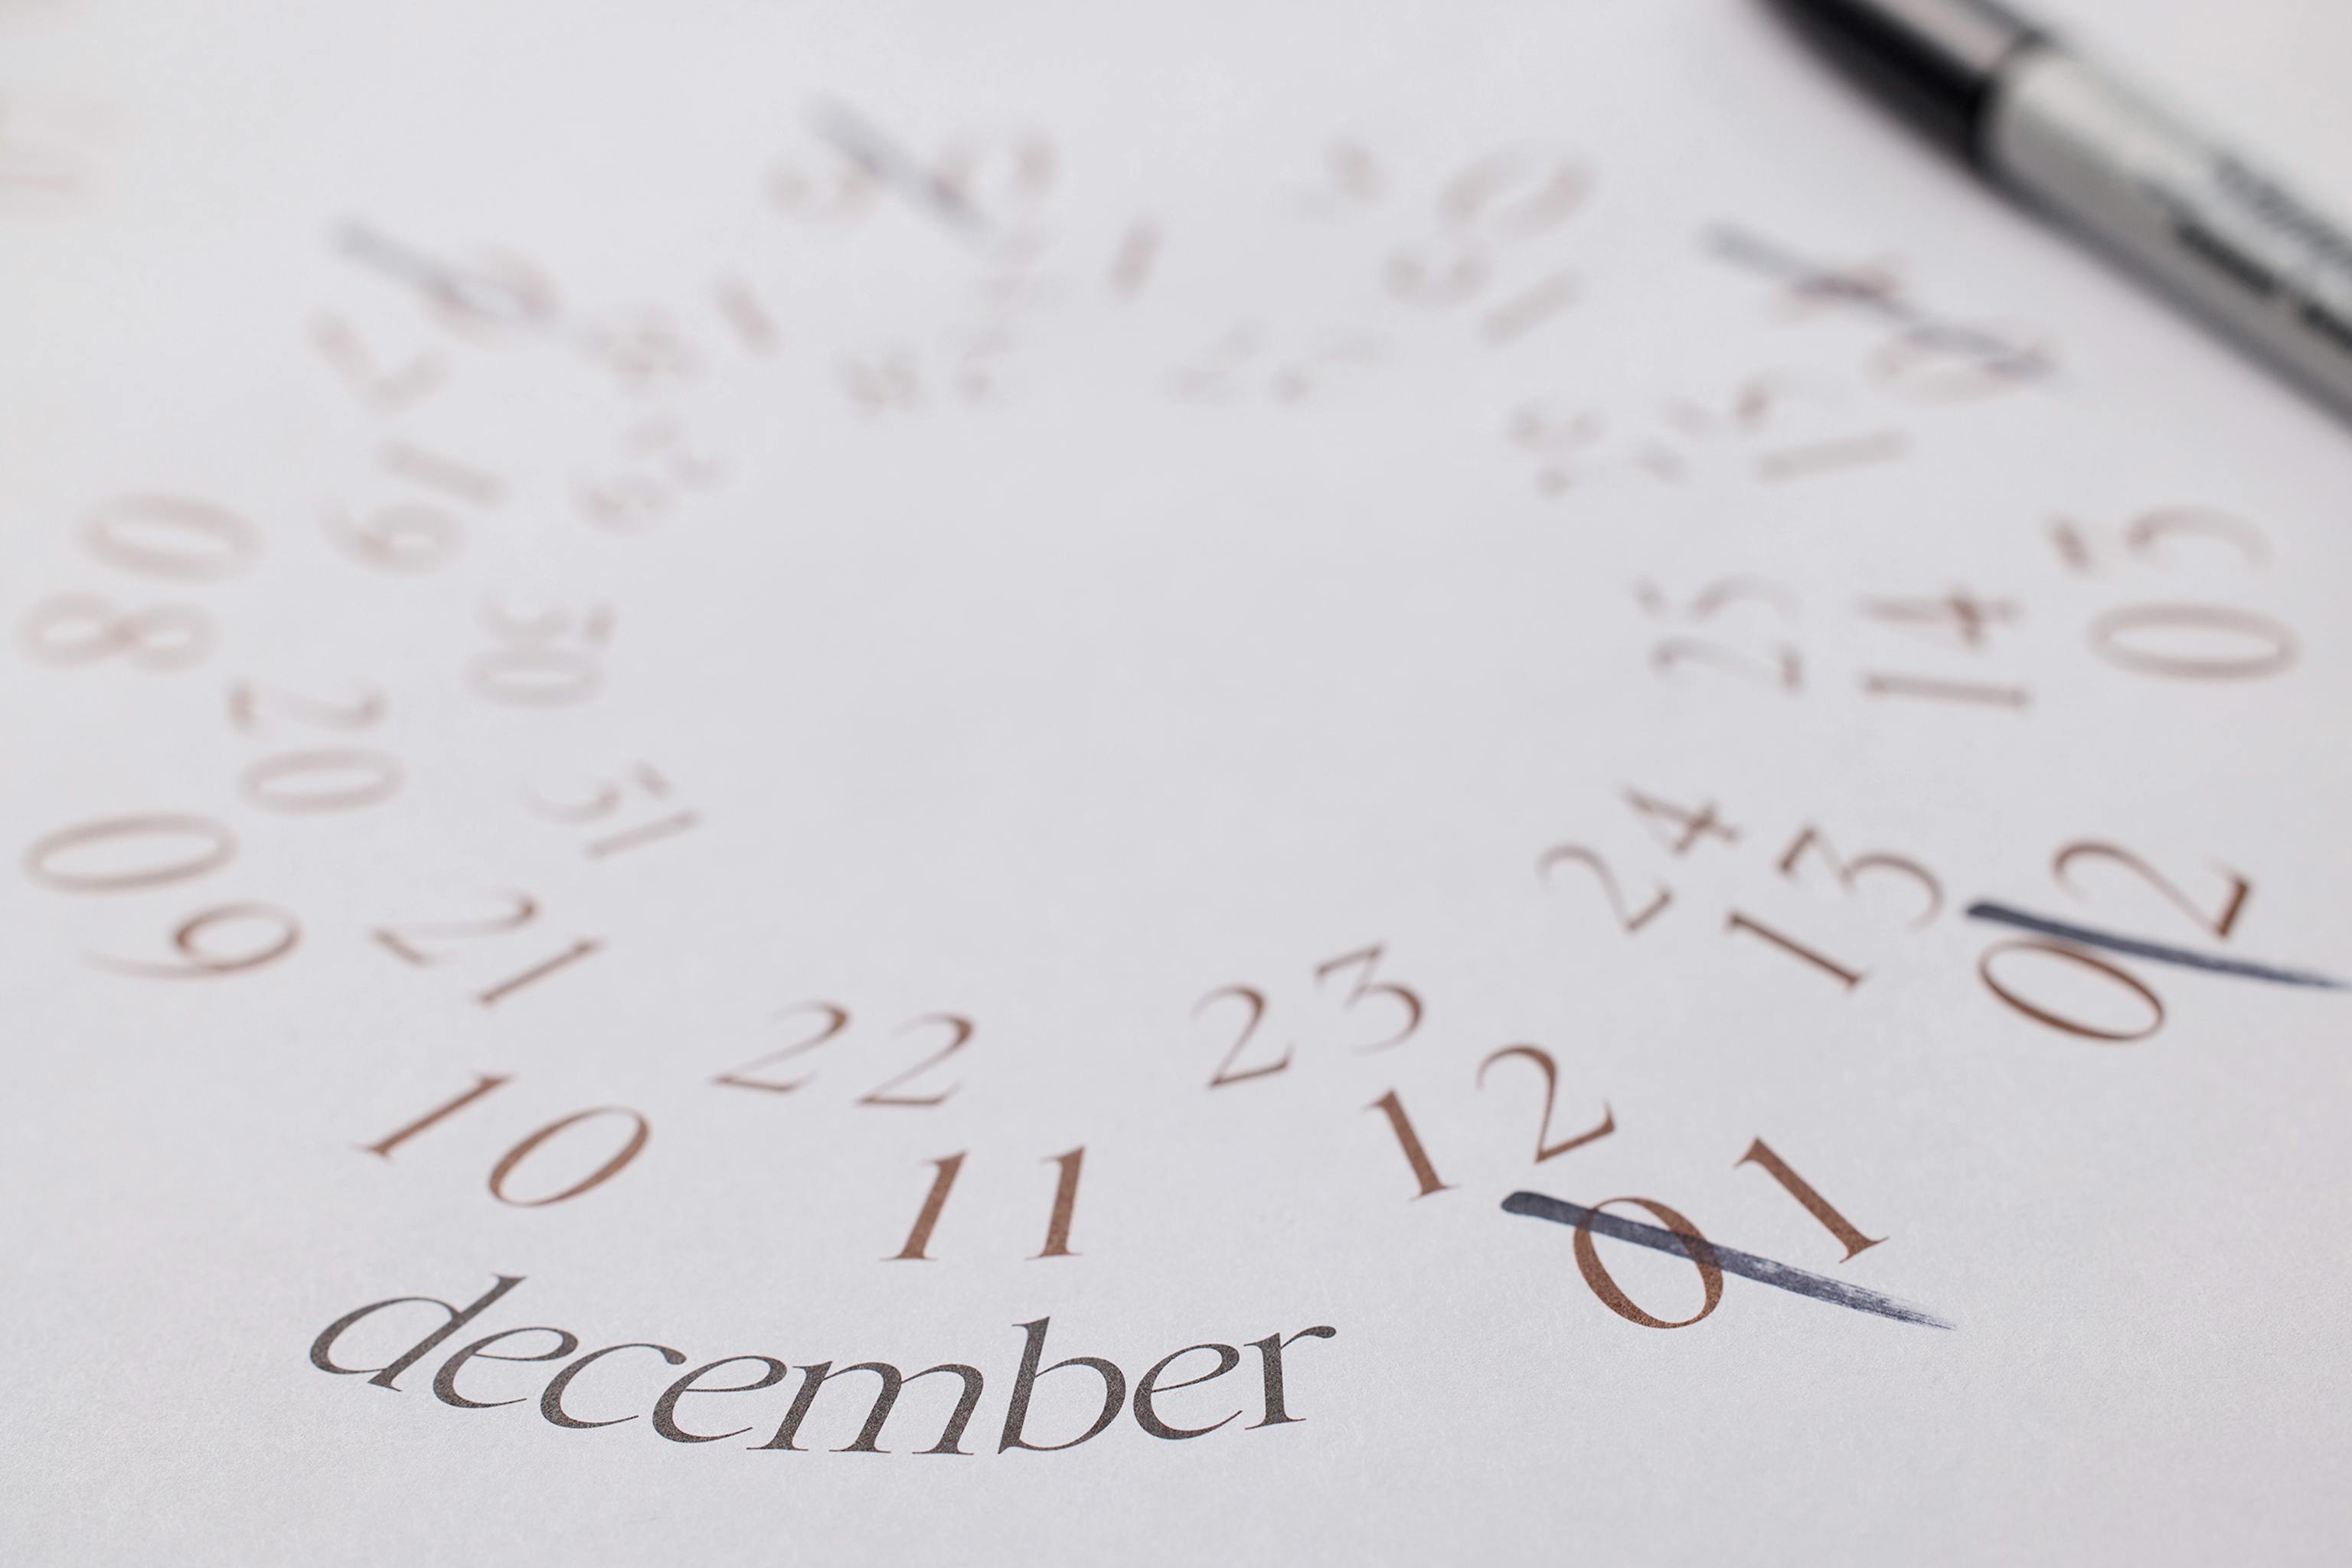 01
02
03
04
08
09
10
11
12
13
14
15
19
20
21
22
23
24
25
30
31
december